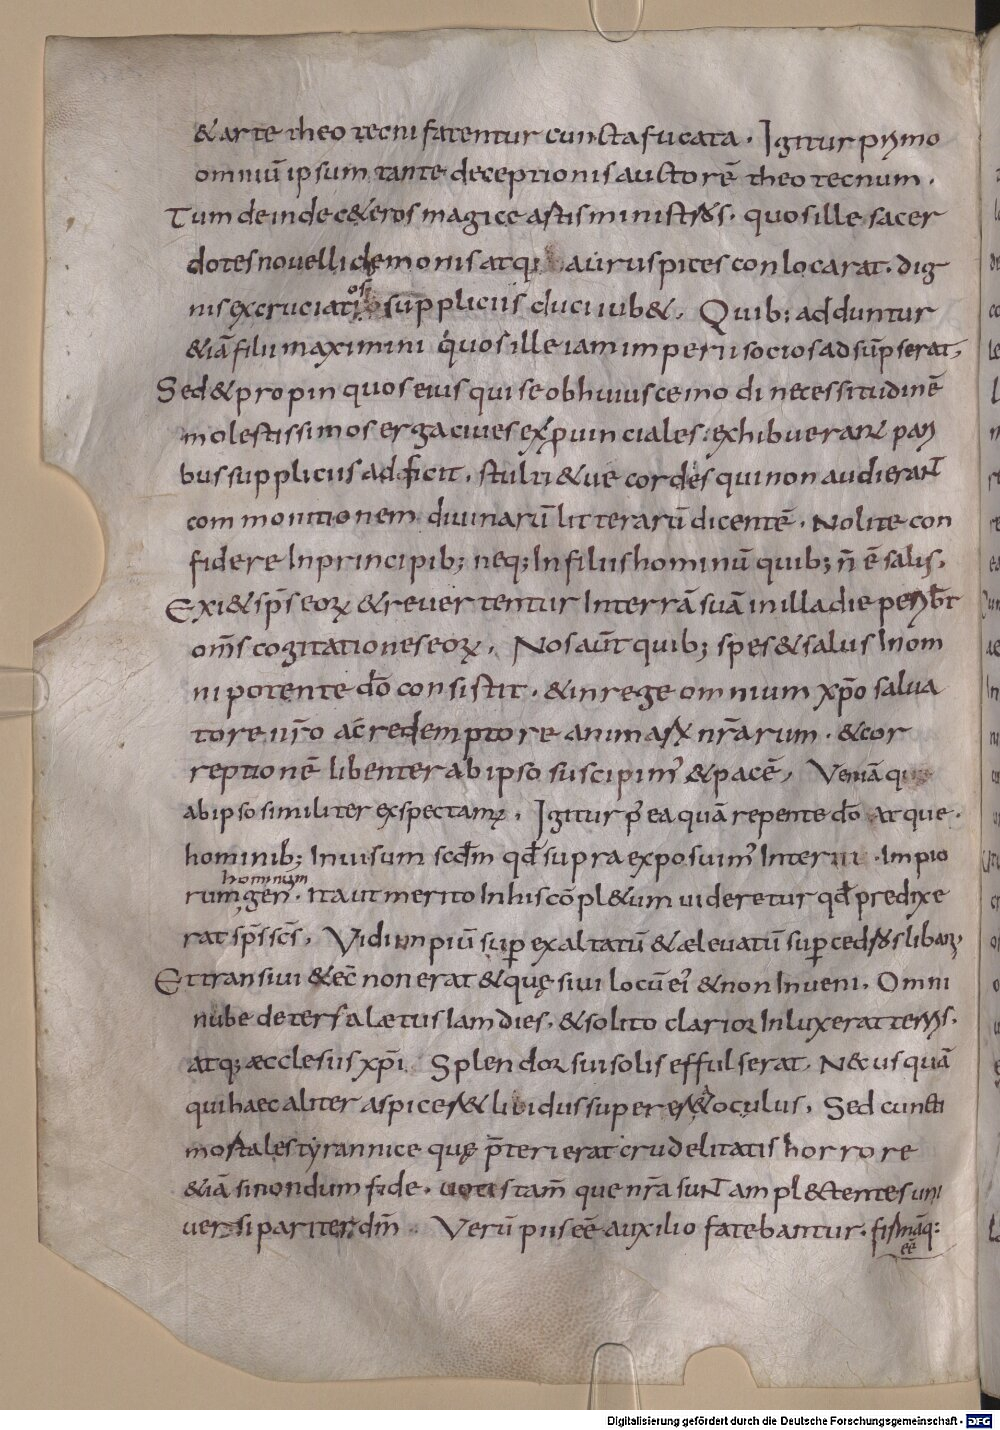 & arte theotecni fatentur cuncta fucata. Igitur primo
omniū ipsum tante deceptionis auctorē theotecnum.
Tum deinde c&eros magice artis ministros. quos ille sacer
dotes novelli demonis atq; auruspites conlocarat. dig
nis excruciatos suppliciis duci iub&. Quib; adduntur
&iā filii maximini quos ille iam imperii socios adsūpserat,
Sed & propinquos eius qui se oblivisce modi necessitudinē
molestissimos erga cives & provinciales exhibuerant pari
bus suppliciis adficit. stulti & ve cordes qui non audierant
commonitionem divinarū litterarū dicentē. Nolite con
fidere In principib; neq; In filiis hominū quib; n̄ ē salus.
Exi& sp̄s eoꝝ & revertentur In terrā suā in illa die perib̄t
om̄s cogitationes eoꝝ. Nos aūt quib; spes & salus In om
nipotente d̄o consistit. & in rege omnium xp̄o salva
tore nr̄o ac redemptore animaꝝ nr̄arum. & cor
reptionē libenter ab ipso suscipim' & pacē, Veniā q;
ab ipso similiter exspectam;. Igitur p' ea quā repente d̄o atque
hominib; Invisum scd̄m qd̄ supra exposuim' Interiit Impio
rum hominum gen'. ita ut merito In his cōpl&um videretur qd̄ predixe
rat sp̄s sc̄s, Vidi impiū sup̄ exaltatū & ælevatū sup̄ cedros liban;
Et transivi & ecc̄ non erat & quęsivi locū ei' & non Inveni. Omni
nube detersa lætus Iam dies. & solito clarior Inluxerat terris.
atq; æcclesiis xp̄i Splendor sui solis effulserat. N&c usquā
qui haec aliter aspicer& lividus super er& oculus. Sed cuncti
mortales tyrannice quę p̄terierat crudelitatis horrore
&iā si nondum fide. votis tam̄ que nr̄a sunt ampl&ctentes uni
versi pariter dm̄ Verū piis eē auxilio fatebantur. firmāq:
eē
Digitalisierung gefördert durch die Deutsche Forschungsgemeinschaft - DFG